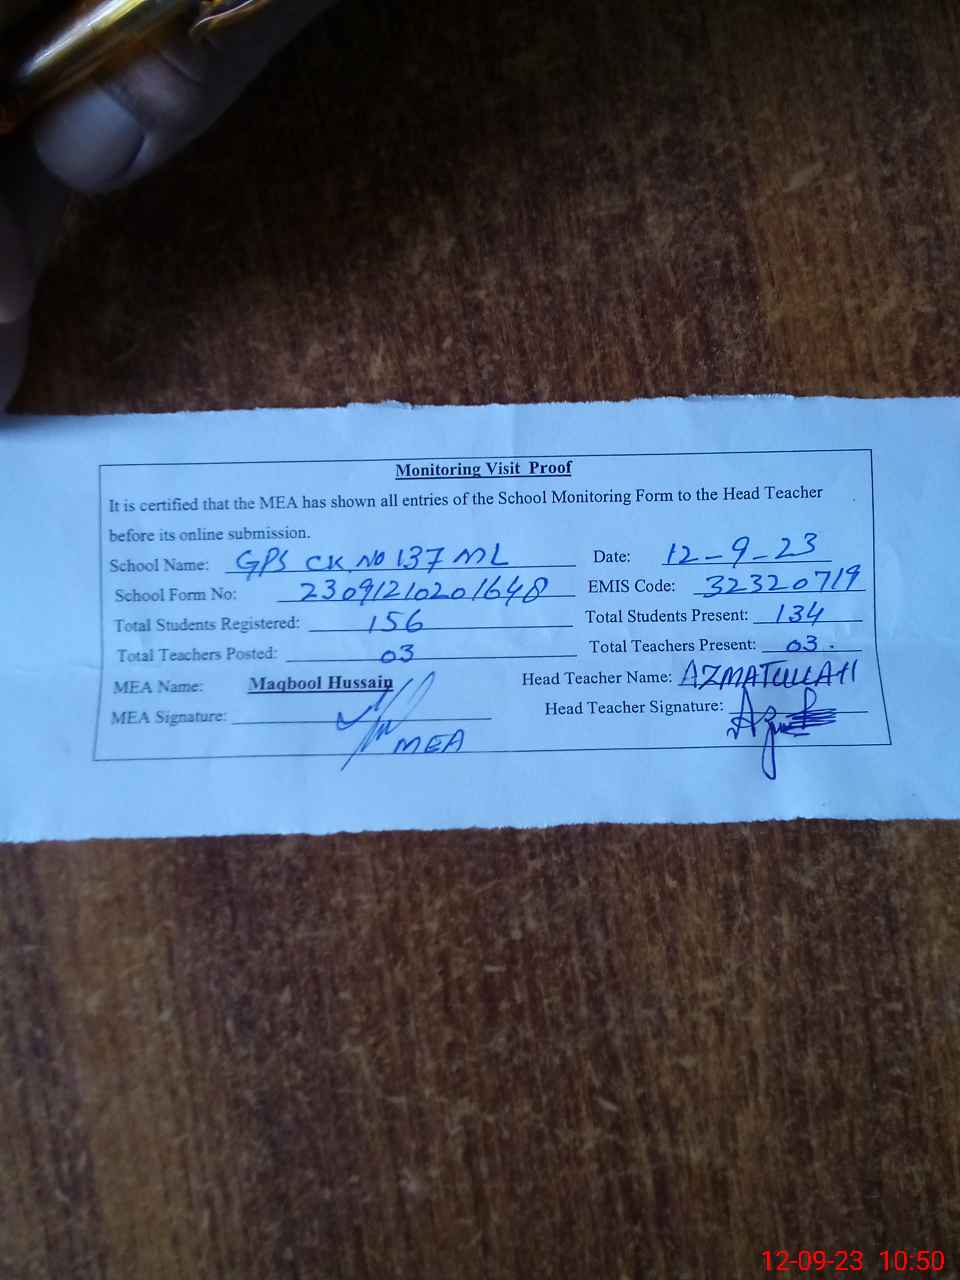 Monitoring Visit Proof
It is certified that the MEA has shown all entries of the School Monitoring Form to the Head Teacher
before its online submission.
School Name: GPS CK NO 137 ML Date: 12-9-23
School Form No: 23091210201648 EMIS Code: 32320719
Total Students Registered: 156 Total Students Present: 134
Total Teachers Posted: 03 Total Teachers Present: 03.
MEA Name: Maqbool Hussain Head Teacher Name: AZMATULLAH
MEA Signature: Head Teacher Signature:
MEA
12-09-23 10:50